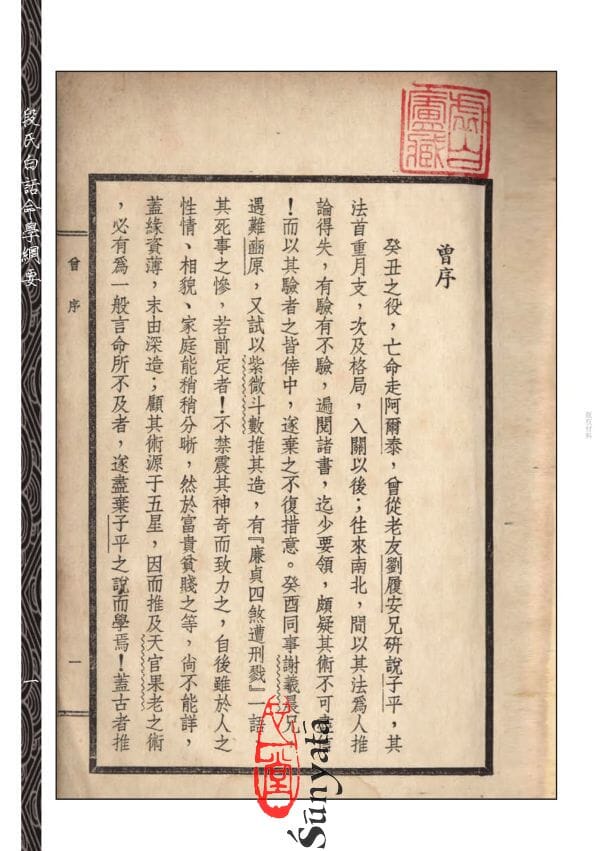 曾序
癸丑之役，亡命走阿爾泰，曾從老友劉履安兄硏說子平，其
法首重月支，次及格局，入關以後；往來南北，間以其法爲人推
論得失，有驗有不驗，遍閱諸書，迄少要領，頗疑其術不可
！而以其驗者之皆倖中，遂棄之不復措意。癸酉同事謝羲晨兄
遇難凾原，又試以紫微斗數推其造，有『廉貞四煞遭刑戮』一語
其死事之慘，若前定者！不禁震其神奇而致力之，自後雖於人之
性情、相貌、家庭能稍稍分晰，然於富貴貧賤之等，尙不能詳，
蓋緣資薄，末由深造；顧其術源于五星，因而推及天官果老之術
，必有爲一般言命所不及者，遂盡棄子平之說而學焉！蓋古者推
曾序
一
段氏白話命學綱要
一
虛白廬藏
心一堂
Śūnyatā
版权材料